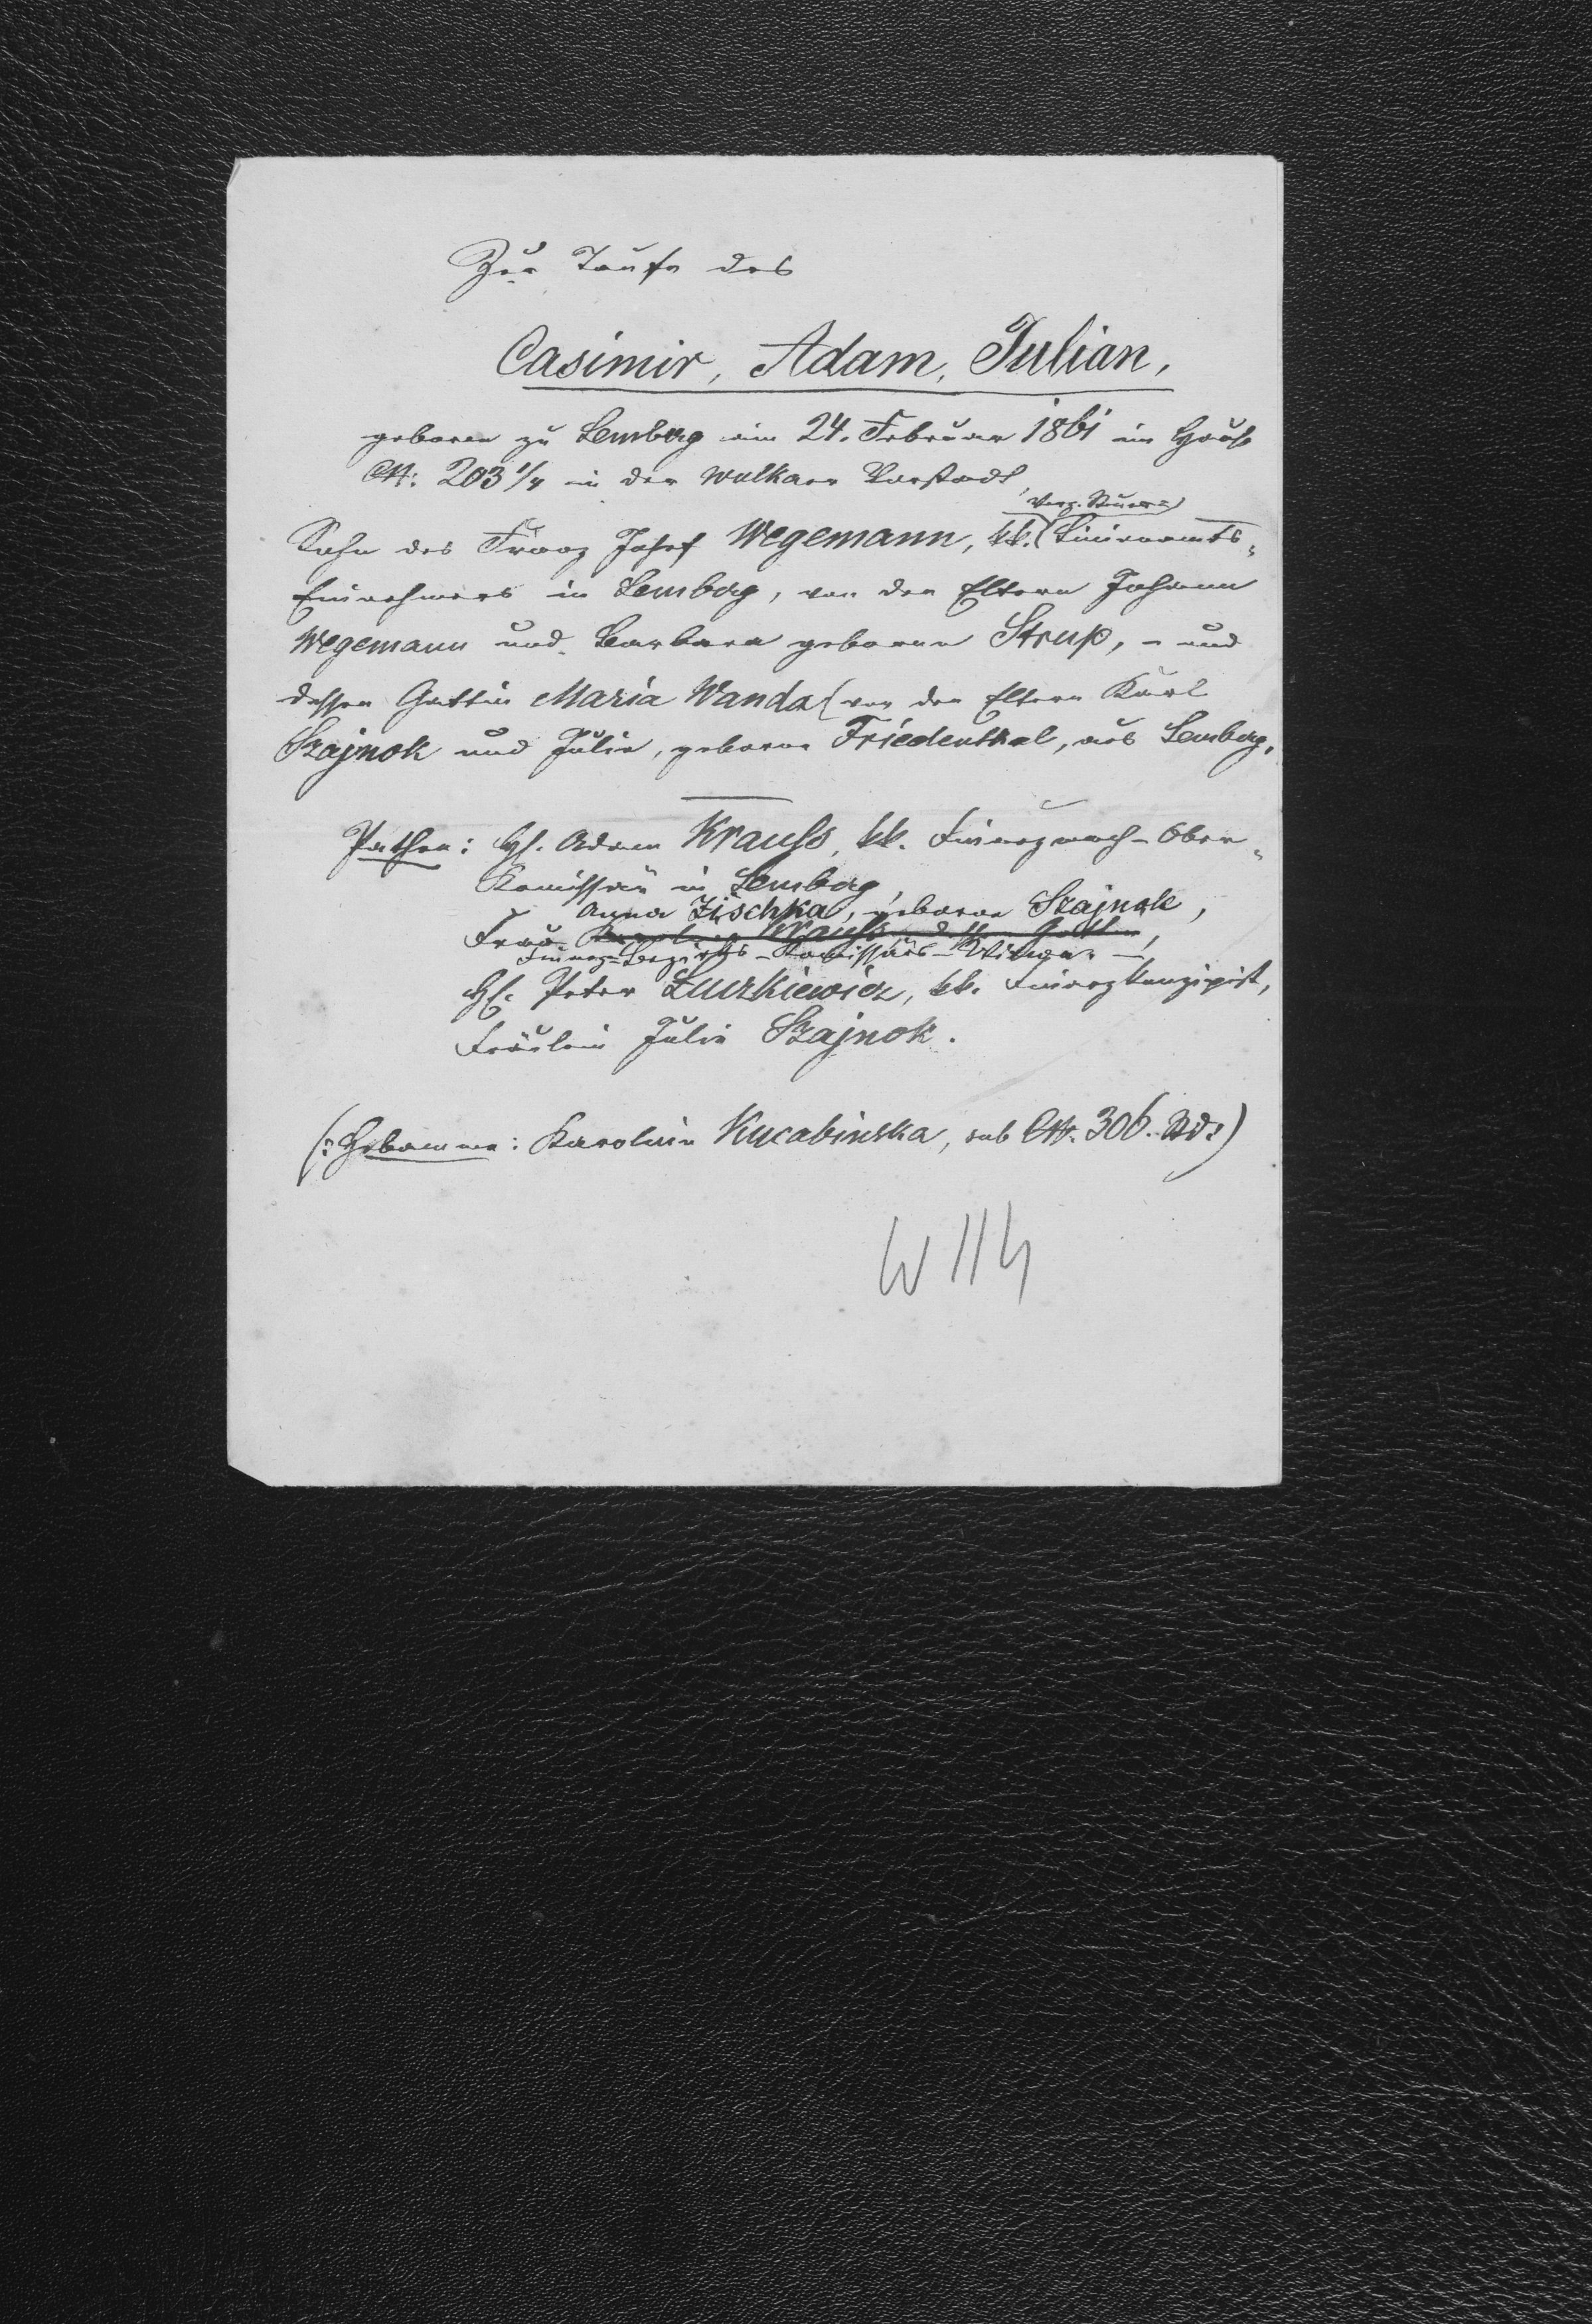 Zur Taufe des
Casimir, Adam, Julian,
geboren zu Lemberg am 24. Februar 1861 im Hause
CN: 203 1/4 in der Wulkaer Vorstadt,
Verz. Steuer=
Sohn des Franz Josef Wegemann, kk. (Linienamts=
Einnehmers in Lemberg, von den Eltern Johann
Wegemann und Barbara geborene Strup, – und
dessen Gattin Maria Wanda (von den Eltern Karl
Szajnok und Julie, geborene Friedenthal, aus Lemberg.
Pathen: H. Adam Krauss, kk. Finanzwach-Ober=
Komissär in Lemberg,
Anna Zischka, geborene Szajnok,
Frau Krauss, dessen Gattin,
Finanz-Bezirks-Komissärs-Witwe. –
H. Peter Łuczkiewicz, kk. Finanzkonzipist,
Fräulein Julie Szajnok.
(: Hebamme: Karoline Kucabinska, sub CN. 306. :)
W 114